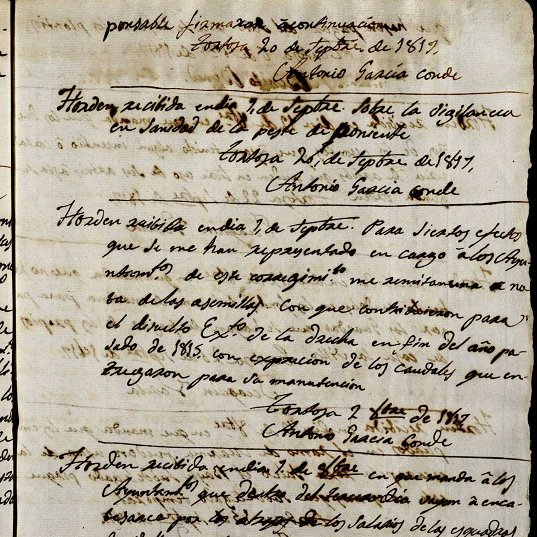 ponsable firmaran acontinuacion
Tortosa 20 de Septre. de 1817,
Antonio Garcia Conde
Horden recibida en dia de Septre. sobre la vigilancia
en sanidad de la peste de poniente
Tortosa 20, de Septre de 1817,
Antonio Garcia Conde
Horden recibida en dia de Septre. Para siertos efectos
que se me han representado en cargo a los Ayun
tamtos. de este corregimito. me remitan una no
ta de las asemillas con que contribuieron para
el disuelto Exto. de la drecha en fin del año pa
sado de 1815 con exprecion de los caudales que en
tregaron para su manutencion
Tortosa 2 8bre de 1817
Antonio Garcia Conde
Horden recibida en dia 2, de 8bre en que manda â los
Ayuntamtos que dentro del dia
por los atrasos de los salarios de las esquadras